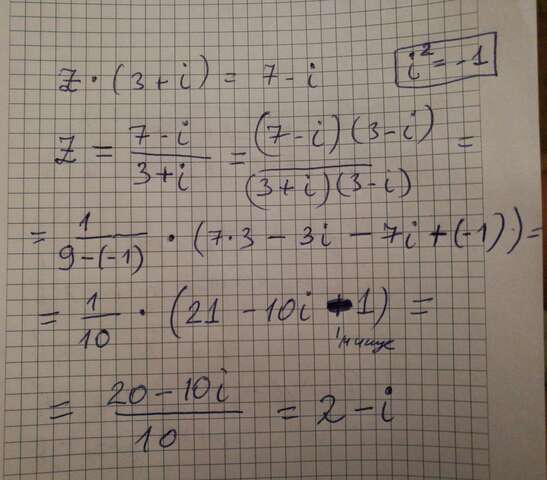 z · (3 + i) = 7 - i
i² = -1
z = (7 - i)/(3 + i) = ((7 - i)(3 - i))/((3 + i)(3 - i)) =
= 1/(9 - (-1)) · (7·3 - 3i - 7i + (-1)) =
= 1/10 · (21 - 10i - 1) =
минус
= (20 - 10i)/10 = 2 - i